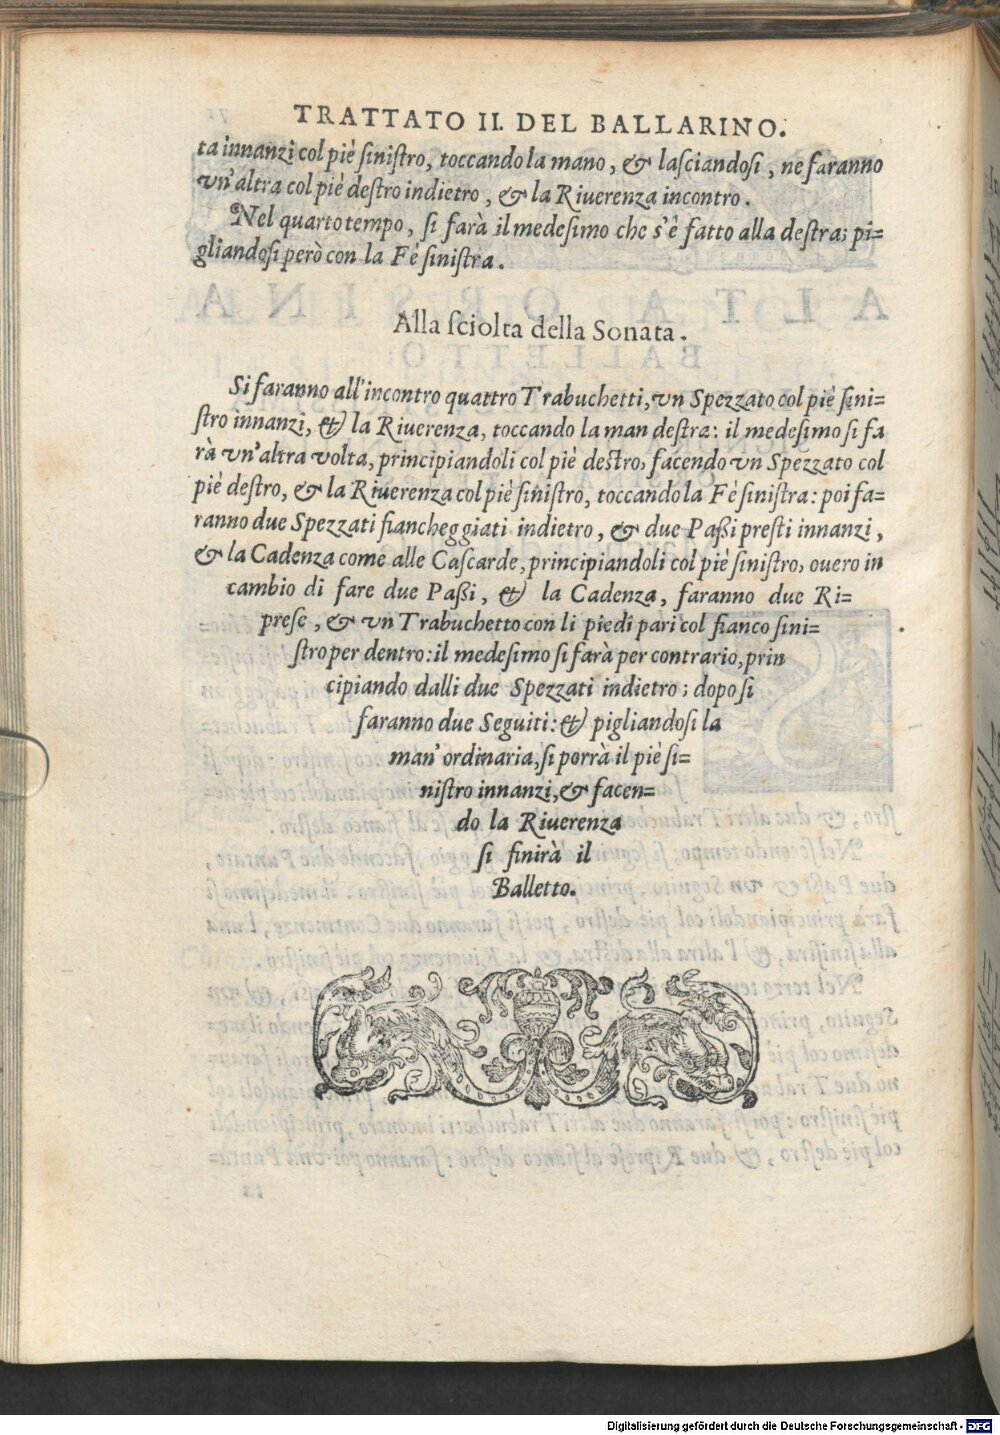 TRATTATO II. DEL BALLARINO.
ta innanzi col piè ſiniſtro, toccando la mano, & laſciandoſi, ne faranno
vn'altra col piè deſtro indietro, & la Riuerenza incontro.
Nel quarto tempo, ſi farà il medeſimo che s'è fatto alla deſtra; pi=
gliandoſi però con la Fè ſiniſtra.
Alla ſciolta della Sonata.
Si faranno all'incontro quattro Trabuchetti, vn Spezzato col piè ſini=
ſtro innanzi, & la Riuerenza, toccando la man deſtra: il medeſimo ſi fa
rà vn'altra volta, principiandoli col piè deſtro, facendo vn Spezzato col
piè deſtro, & la Riuerenza col piè ſiniſtro, toccando la Fè ſiniſtra: poi fa=
ranno due Spezzati fiancheggiati indietro, & due Paßi preſti innanzi,
& la Cadenza come alle Caſcarde, principiandoli col piè ſiniſtro, ouero in
cambio di fare due Paßi, & la Cadenza, faranno due Ri=
preſe, & vn Trabuchetto con li piedi pari col fianco ſini=
ſtro per dentro: il medeſimo ſi farà per contrario, prin
cipiando dalli due Spezzati indietro; dopo ſi
faranno due Seguiti: & pigliandoſi la
man' ordinaria, ſi porrà il piè ſi=
niſtro innanzi, & facen=
do la Riuerenza
ſi finirà il
Balletto.
Digitalisierung gefördert durch die Deutsche Forschungsgemeinschaft - DFG